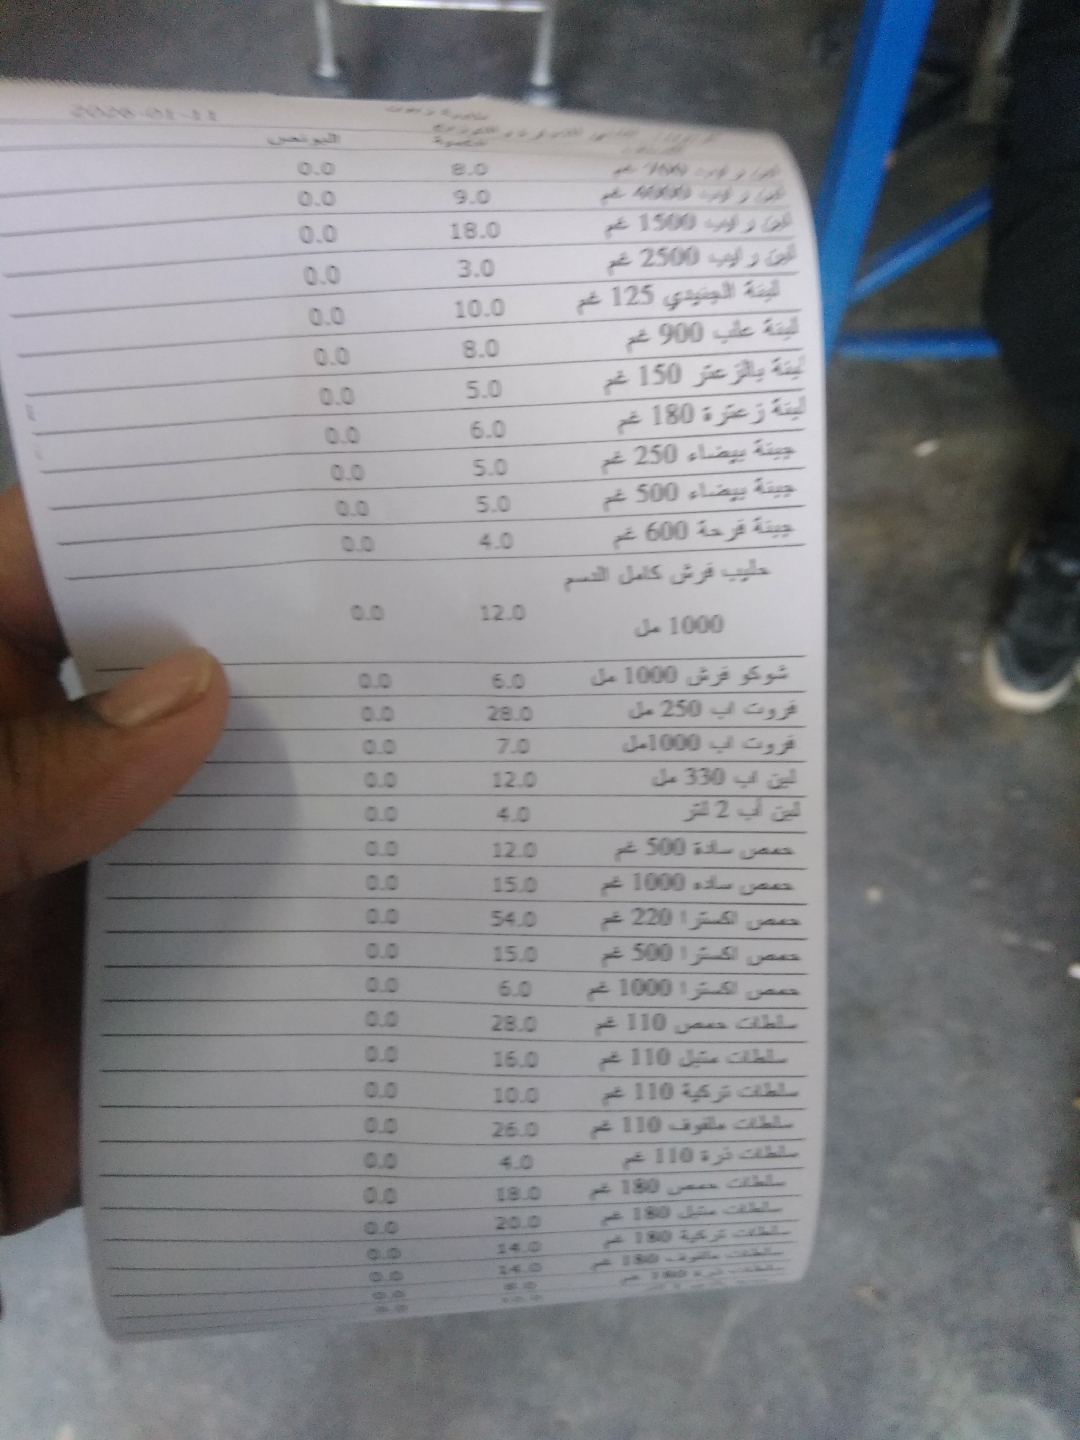 2026-01-11
البونص
لبن رايب 700 غم 8.0 0.0
لبن رايب 4000 غم 9.0 0.0
لبن رايب 1500 غم 18.0 0.0
لبن رايب 2500 غم 3.0 0.0
لبنة الجنيدي 125 غم 10.0 0.0
لبنة علب 900 غم 8.0 0.0
لبنة بالزعتر 150 غم 5.0 0.0
لبنة زعترة 180 غم 6.0 0.0
جبنة بيضاء 250 غم 5.0 0.0
جبنة بيضاء 500 غم 5.0 0.0
جبنة فرحة 600 غم 4.0 0.0
حليب فرش كامل الدسم
1000 مل 12.0 0.0
شوكو فرش 1000 مل 6.0 0.0
فروت اب 250 مل 28.0 0.0
فروت اب 1000مل 7.0 0.0
لبن اب 330 مل 12.0 0.0
لبن أب 2 لتر 4.0 0.0
حمص سادة 500 غم 12.0 0.0
حمص ساده 1000 غم 15.0 0.0
حمص اكسترا 220 غم 54.0 0.0
حمص اكسترا 500 غم 15.0 0.0
حمص اكسترا 1000 غم 6.0 0.0
سلطات حمص 110 غم 28.0 0.0
سلطات متبل 110 غم 16.0 0.0
سلطات تركية 110 غم 10.0 0.0
سلطات ملفوف 110 غم 26.0 0.0
سلطات ذرة 110 غم 4.0 0.0
سلطات حمص 180 غم 18.0 0.0
سلطات متبل 180 غم 20.0 0.0
سلطات تركية 180 غم 14.0 0.0
سلطات ملفوف 180 غم 14.0 0.0
سلطات ذرة 180 غم 0.0
0.0